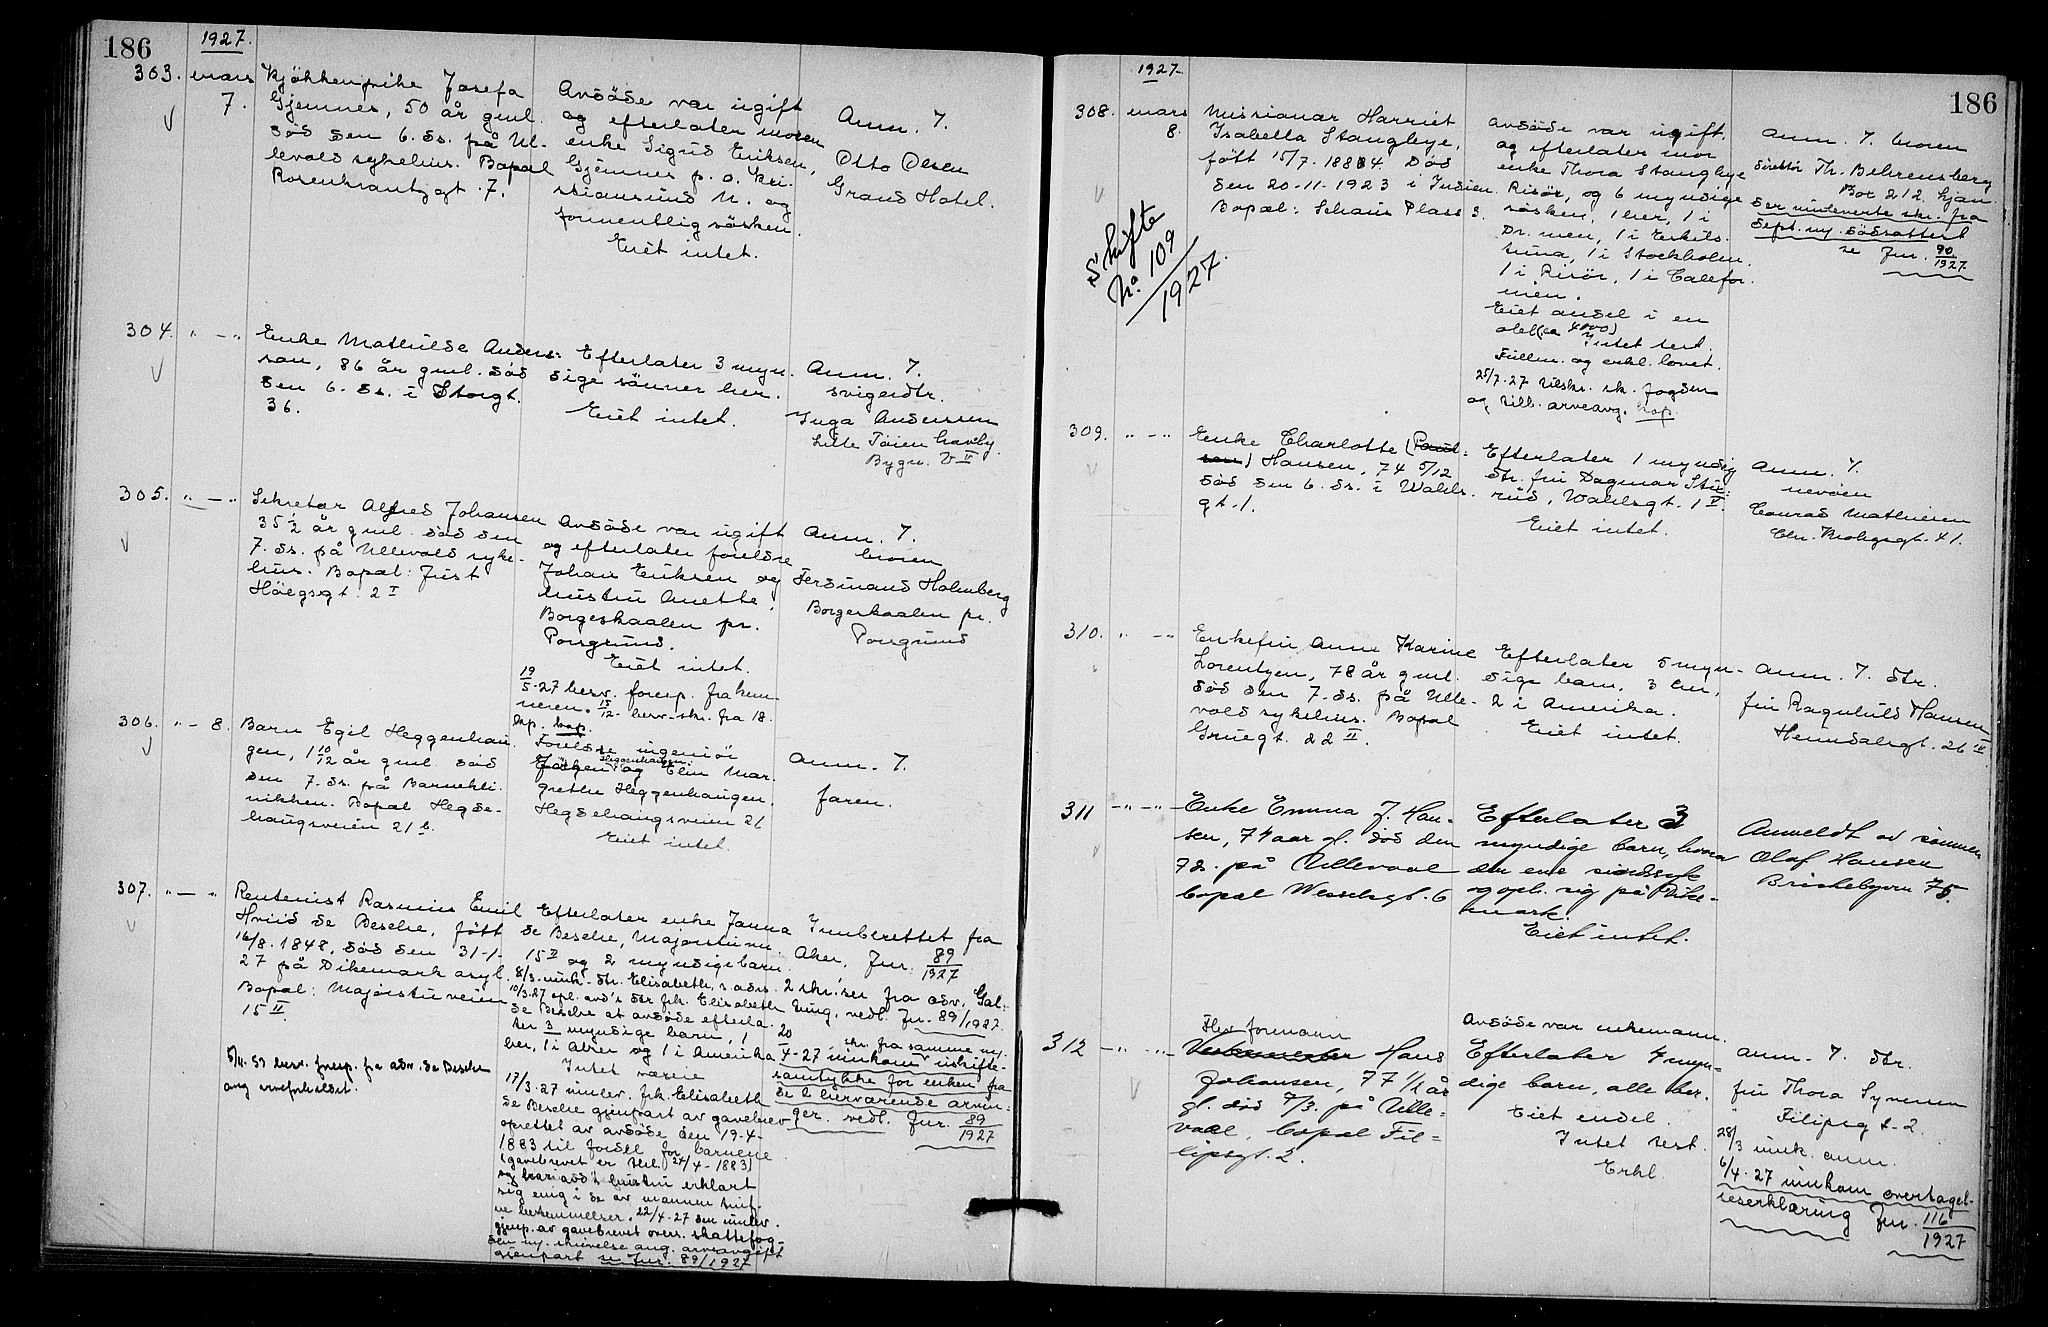 186
1927.
303. mars
7.
Kjøkkenpike Josefa
Gjemnes, 50 år gml.
død den 6. ds. på Ul-
levold sykehus. Bopæl
Rosenkrantzgt. 7.
Avdøde var ugift
og efterlater moren
enke Sigrid Eriksen,
Gjemnes p.a. Kri-
stiansund N. og
formentlig søsken.
Eiet intet.
Anm. 7.
Otto Olsen
Grand Hotel.
304. " — "
Enke Mathilde Anders:
son, 86 år gml. død
den 6. ds. i Storgt.
36.
Efterlater 3 myn-
dige sønner her.
Eiet intet.
Anm. 7.
svigerdtr.
Inga Andersen
Lille Tøien haveby
Bygn. V II
305. " — "
Sekretær Alfred Johansen
35 1/2 år gml. død den
7. ds. på Ullevold syke-
hus. Bopæl: Just
Høegsgt. 2 I
Avdøde var ugift
og efterlater foreldre
Johan Eriksen og
hustru Anette,
Borgeskaalen pr.
Porsgrund.
Eiet intet.
19/5-27 besv. foresp. fra kem-
neren. 15/12- besv. skr. fra 18.
kp. kop.
Anm. 7.
broren
Ferdinand Holmberg
Borgeskaalen pr.
Porsgrund
306. " — 8.
Barn Egil Heggenhau
gen, 1 10/12 år gml. død
den 7. ds. på Barnekli-
nikken. Bopæl Hegde-
haugsveien 21 b.
Foreldre ingeniør
Heggenhaugen
og Elin Mar-
grethe Heggenhaugen,
Hegdehaugsveien 26
Eiet intet.
Anm. 7.
faren.
307. " — "
Rentenist Rasmus Emil
Hviid de Besche, født
16/8. 1848, død den 31-1-
27 på Dikemark asyl.
Bopæl: Majorstuveien
15 II.
Efterlater enke Janna
de Besche, Majorstuvn.
15 II og 2 myndige barn.
8/3. innk. dtr. Elisabeth, s. adrs.
10/3.27 opl. avd's dtr. frk. Elisabeth
de Besche at avdøde efterla-
ter 3 myndige barn, 1
her, 1 i Aker og 1 i Amerika
Intet værge
17/3-27 innlev. frk. Elisabeth
de Besche gjenpart av gavebrev
oprettet av avdøde den 19-4-
1883 til fordel for barnene
(gavebrevet er tinl. 24/4-1883)
og hvori avd's hustru erklært
sig enig i de av mannen truf-
ne bestemmelser. 22/4-27 den innlev.
gjenp. av gavebrevet overs. skattefog-
den m. skrivelse ang. arveavgift
gjenpart se Jnr. 89/1927
Innberettet fra
Aker, Jnr. 89/1927
2 skr.'ser fra adv. Gal-
tung, vedl. Jnr. 89/1927.
20/4-27 skr. fra samme m.
innkom uskifte-
samtykke for enken fra
de 2 herværende arvin-
ger. vedl. Jnr. 89/1927
besv. foresp. fra adv. de Besche
ang. arveforholdet.
186
1927.
308. mars
8.
Misionær Harriet
Isabella Stangbye,
født 15/7. 1884. Død
den 20-11-1923 i Indien.
Bopæl: Schaus Plass 3.
Skifte
No. 109/1927.
avdøde var ugift,
og efterlater mor
enke Thora Stangbye
Risør, og 6 myndige
søsken, 1 her, 1 i
Dr.men, 1 i Eskils-
tuna, 1 i Stockholm,
1 i Risør, 1 i Califor-
nien.
Eiet andel i en
obl. (ca 4000)
Intet test.
Fullm. og erkl. lovet.
25/7-27 tilskr. sk. fogden
og till. arveavg. kop.
Anm. 7. broren
direktør Th. Behrensberg
Bor 212 Kjøn
der innleverte skr. fra
Sept. m. dødsattest
se Jnr. 90/1927.
309. " — "
Enke Charlotte (Paul-
sen) Hansen, 74 5/12
død den 6. ds. i Wahls.
gt. 1.
Efterlater 1 myndig
dtr. fru Dagmar Stu-
rud, Wahlsgt. 1 V.
Eiet intet.
Anm. 7.
nevøen
Conrad Mathiesen
Chr. Krohgsgt. 41.
310. " — "
Enkefru Anne Karine
Lorentzen, 78 år gml.
død den 7. ds. på Ulle-
vold sykehus. Bopæl
Gruegt. 22 II.
Efterlater 5 myn-
dige barn, 3 her,
2 i Amerika.
Eiet intet.
Anm. 7. dtr.
fru Ragnhild Hansen
Heimdalsgt. 26 II
311 — " — " —
Enke Emma J. Han-
sen, 74 aar gl. død den
7 ds. på Ullevaal
bopæl Wesselsgt. 6
Efterlater 3
myndige barn, hvora
den ene sindssyk
og oph. sig på Dike-
mark.
Eiet intet.
Anmeldt av sønnen
Olaf Hansen
Briskebyvn 75.
312 — " — " —
formann
Hans
Johansen, 77 1/2 år
gl. død 7/3. på Ulle-
vaal, bopæl Fil-
ipsgt. 2.
Avdøde var enkemann.
Efterlater 4 myn-
dige barn, alle her.
Eiet endel.
Intet test.
Erkl.
anm. 7. dtr.
fru Thora Syversen
Filipsgt. 2.
28/3 innk. anm.
6/4-27 innkom overtagel-
seserklæring Jnr. 116/1927